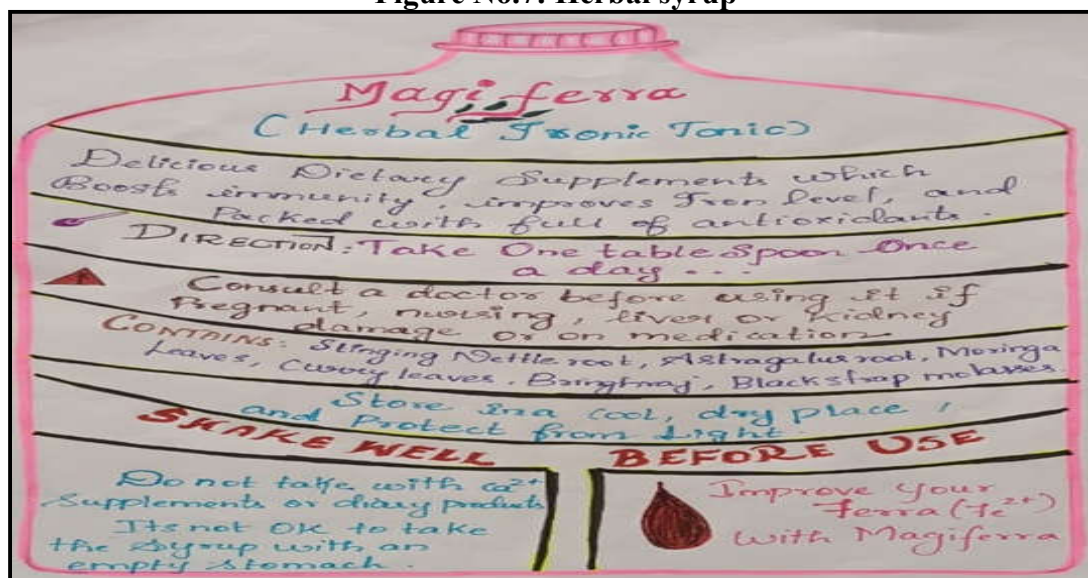 Figure No.7: Herbal syrup
Magiferra
(Herbal Ironic Tonic)
Delicious Dietary Supplements which
Boosts immunity, improves Iron level, and
Packed with full of antioxidants.
DIRECTION: Take One table Spoon Once
a day...
Consult a doctor before using it if
Pregnant, nursing, liver or kidney
damage or on medication
CONTAINS: Stinging Nettle root, Astragalus root, Moringa
Leaves, Curry leaves, Bringhraj, Black strap molasses.
Store in a cool, dry place,
and Protect from Light.
SHAKE WELL BEFORE USE
Do not take with Ca2+
Supplements or diary products
Its not OK to take
the Syrup with an
empty stomach.
Improve your
Ferra (Fe2+)
with Magiferra